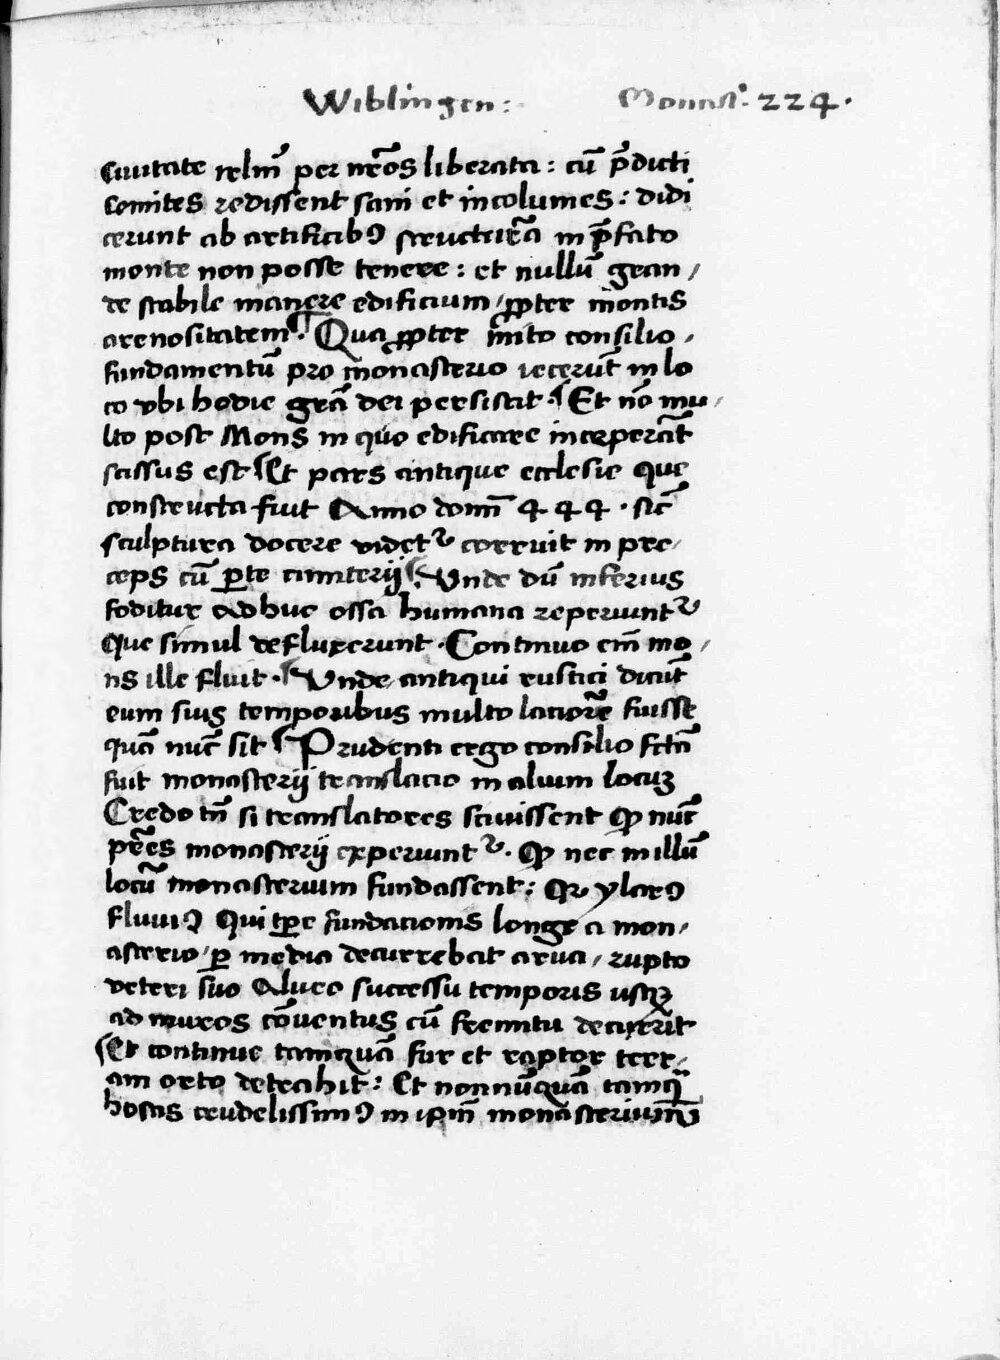 Wiblingen: Monast. 224.
Ciuitate irłm̄ per nr̄os liberata: cū p̄dicti
Comites redissent sani et incolumes: didi
cerunt ab artificibꝰ structurā in p̄fato
monte non posse tenere: et nullū gran/
de stabile manere edificium/ ꝓpter montis
arenositatem. ¶ Qua ꝓpter inito consilio,
fundamentū pro monasterio iecerūt in lo
co vbi hodie grā dei persistit. ¶ Et nō mu/
lto post Mons in quo edificare inceperāt
scissus est ¶ Et pars antique ecclesie que
constructa fuit Anno domī 444. sic̄
sculptura docere videtᷣ corruit in pre/
ceps cū ꝑte cimiterij ¶. Vnde dū inferius
foditur adhuc ossa humana reperiuntᷣ
que simul defluxerunt. Continuo em̄ mo/
ns ille fluit. ¶ Vnde antiqui rustici dicūt
eum suis temporibus multo laciorē fuisse
quā nūc sit ¶ Prudenti ergo consilio fctā
fuit monasterij translacio in alium locuꝫ
Credo tn̄ si translatores sciuissent ꝙ nūc
pr̄es monasterij experiuntᷣ. ꝙ nec in illū
locū monasterium fundassent: Qꝛ ylarꝰ
fluuiꝰ qui tꝑe fundacionis longe a mon/
asterio/ ꝑ media decurrebat arua/ rupto
veteri suo alueo successu temporis usqꝫ
ad muros cōuentus cū fremitu decurrit
¶ Et continue tamquā fur et raptor terr/
am orto detrahit: Et nonnūquā tamq̄
hostis crudelissimꝰ in ip̄m monasterium